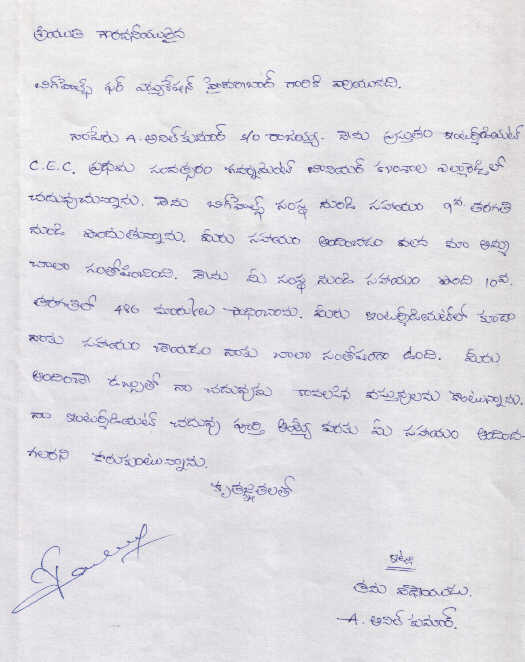 శ్రీయుత గౌరవనీయులైన
బిగ్‌హెల్ప్ ఫర్ ఎడ్యుకేషన్ హైదరాబాద్ గారికి వ్రాయునది.
నాపేరు A. అనిల్ కుమార్ S/o రాజయ్య. నేను ప్రస్తుతం ఇంటర్మీడియెట్
C.E.C. ప్రథమ సంవత్సరం గవర్నమెంట్ జూనియర్ కళాశాల ఎల్లారెడ్డిలో
చదువుచున్నాను. నేను బిగ్‌హెల్ప్ సంస్థ నుండి సహాయం 9వ. తరగతి
నుండి పొందుతున్నాను. మీరు సహాయం అందించడం వలన మా అమ్మ
చాలా సంతోషించింది. నేను మీ సంస్థ నుండి సహాయం పొంది 10వ.
తరగతిలో 486 మార్కులు సాధించాను. మీరు ఇంటర్మీడియెట్‌లో కూడా
నాకు సహాయం చేయడం నాకు చాలా సంతోషంగా ఉంది. మీరు
అందించే డబ్బుతో నా చదువుకు కావలసిన వస్తువులను కొంటున్నాను.
నా ఇంటర్మీడియెట్ చదువు పూర్తి అయ్యే వరకు మీ సహాయం అందించ-
గలరని కోరుకుంటున్నాను.
కృతజ్ఞతలతో
ఇట్లు
తమ విధేయుడు.
A. అనిల్ కుమార్.